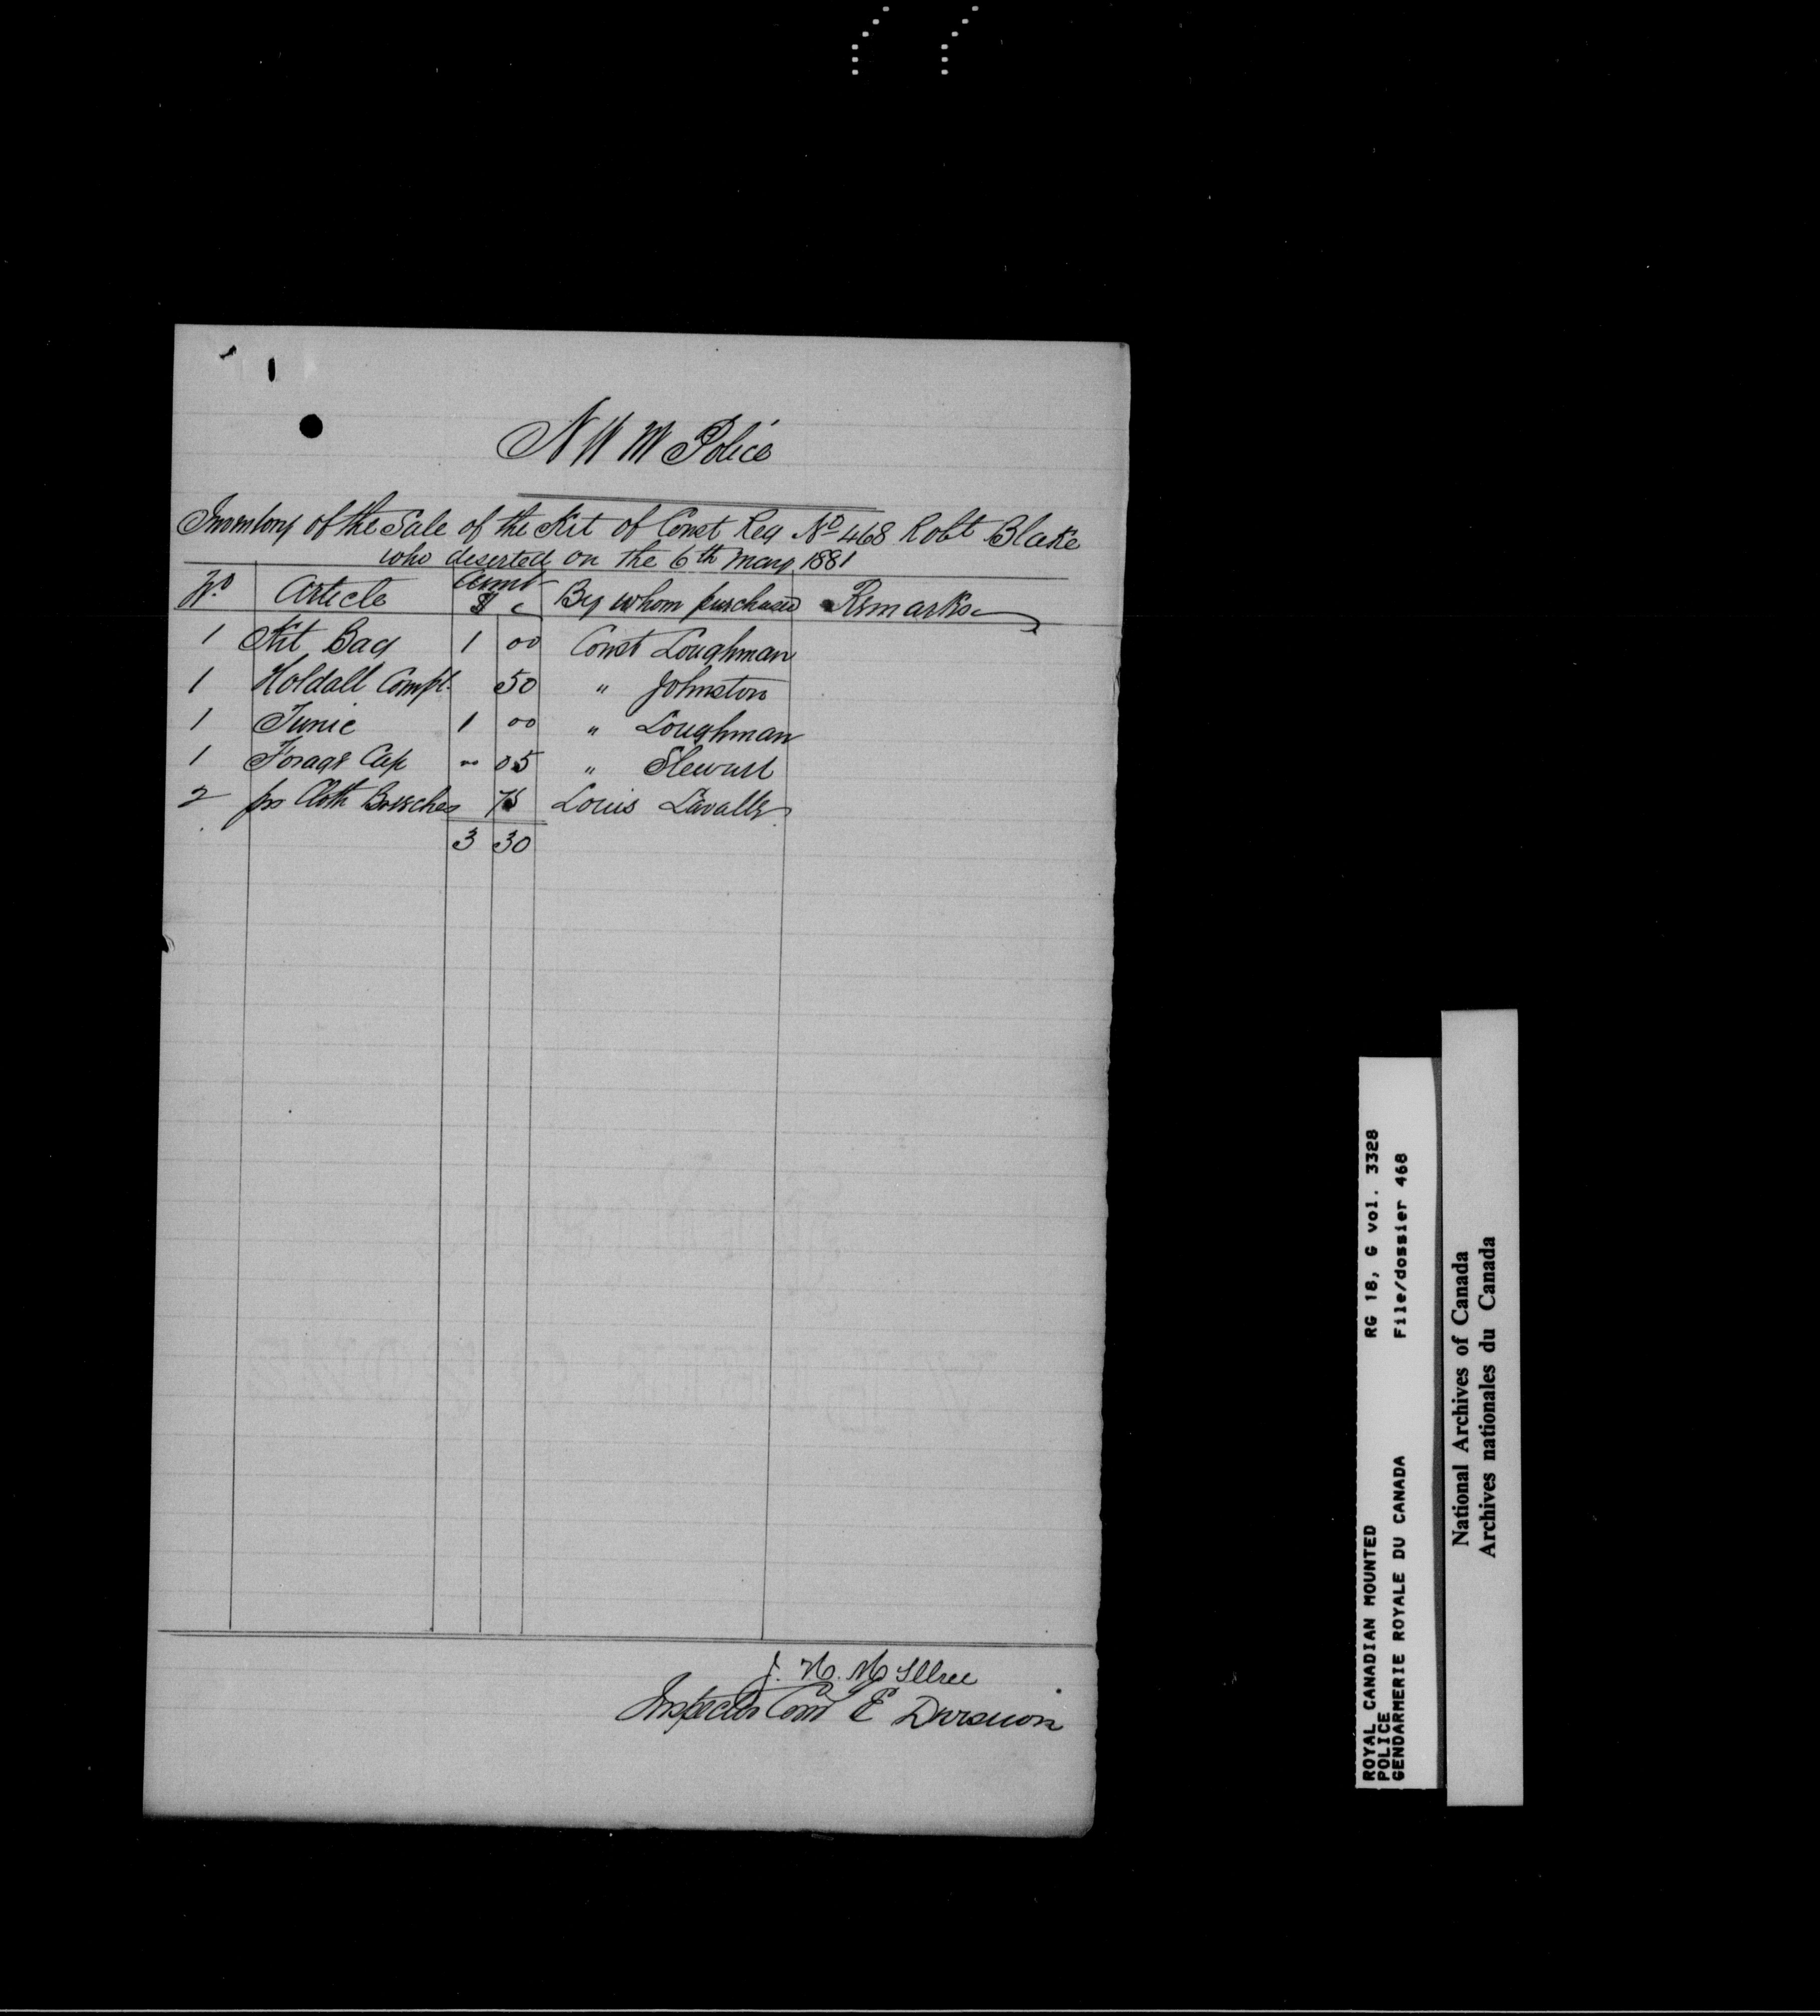 N W M Police
Inventory of the Sale of the Kit of Const Reg No 468 Robt Blake
who deserted on the 6th May 1881
No Article Amt $ c By whom purchased Remarks
1 Kit Bag 1 00 Const Loughman
1 Holdall Compl. 50 " Johnston
1 Tunic 1 00 " Loughman
1 Forage Cap " 05 " Stewart
2 prs Cloth Breeches 75 Louis Lavalle
3 30
J. H. McIllree
Inspector Com E Division
ROYAL CANADIAN MOUNTED RG 18, G vol. 3328
POLICE
GENDARMERIE ROYALE DU CANADA File/dossier 468
National Archives of Canada
Archives nationales du Canada